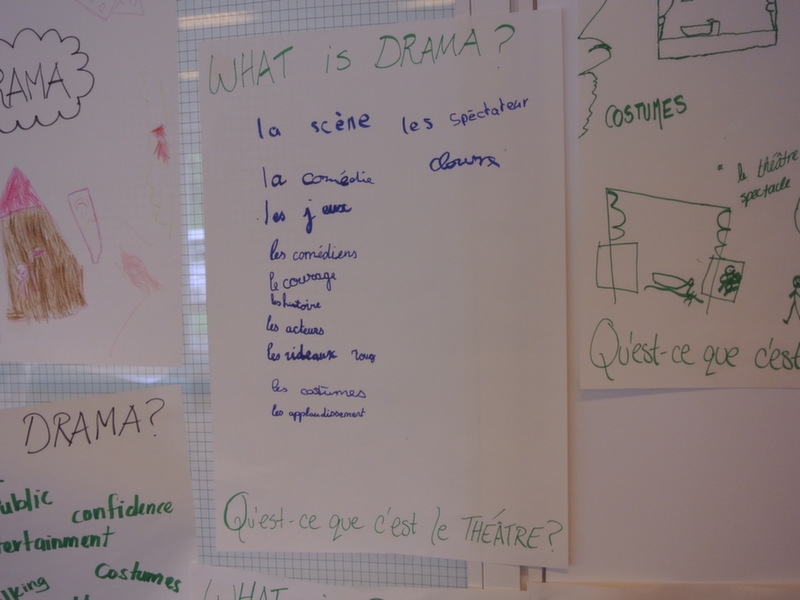 WHAT iS DRAMA?
la scène les spéctateur
la comédie
les jeux
les comédiens
le courage
les histoire
les acteurs
les rideaux roug
les costumes
les applaudissement
Qu'est-ce que c'est le THÉÂTRE?
RAMA
DRAMA?
ublic confidence
tertainment
lking Costumes
WHAT
COSTUMES
le théâtre
spectacle
Qu'est-ce que c'est